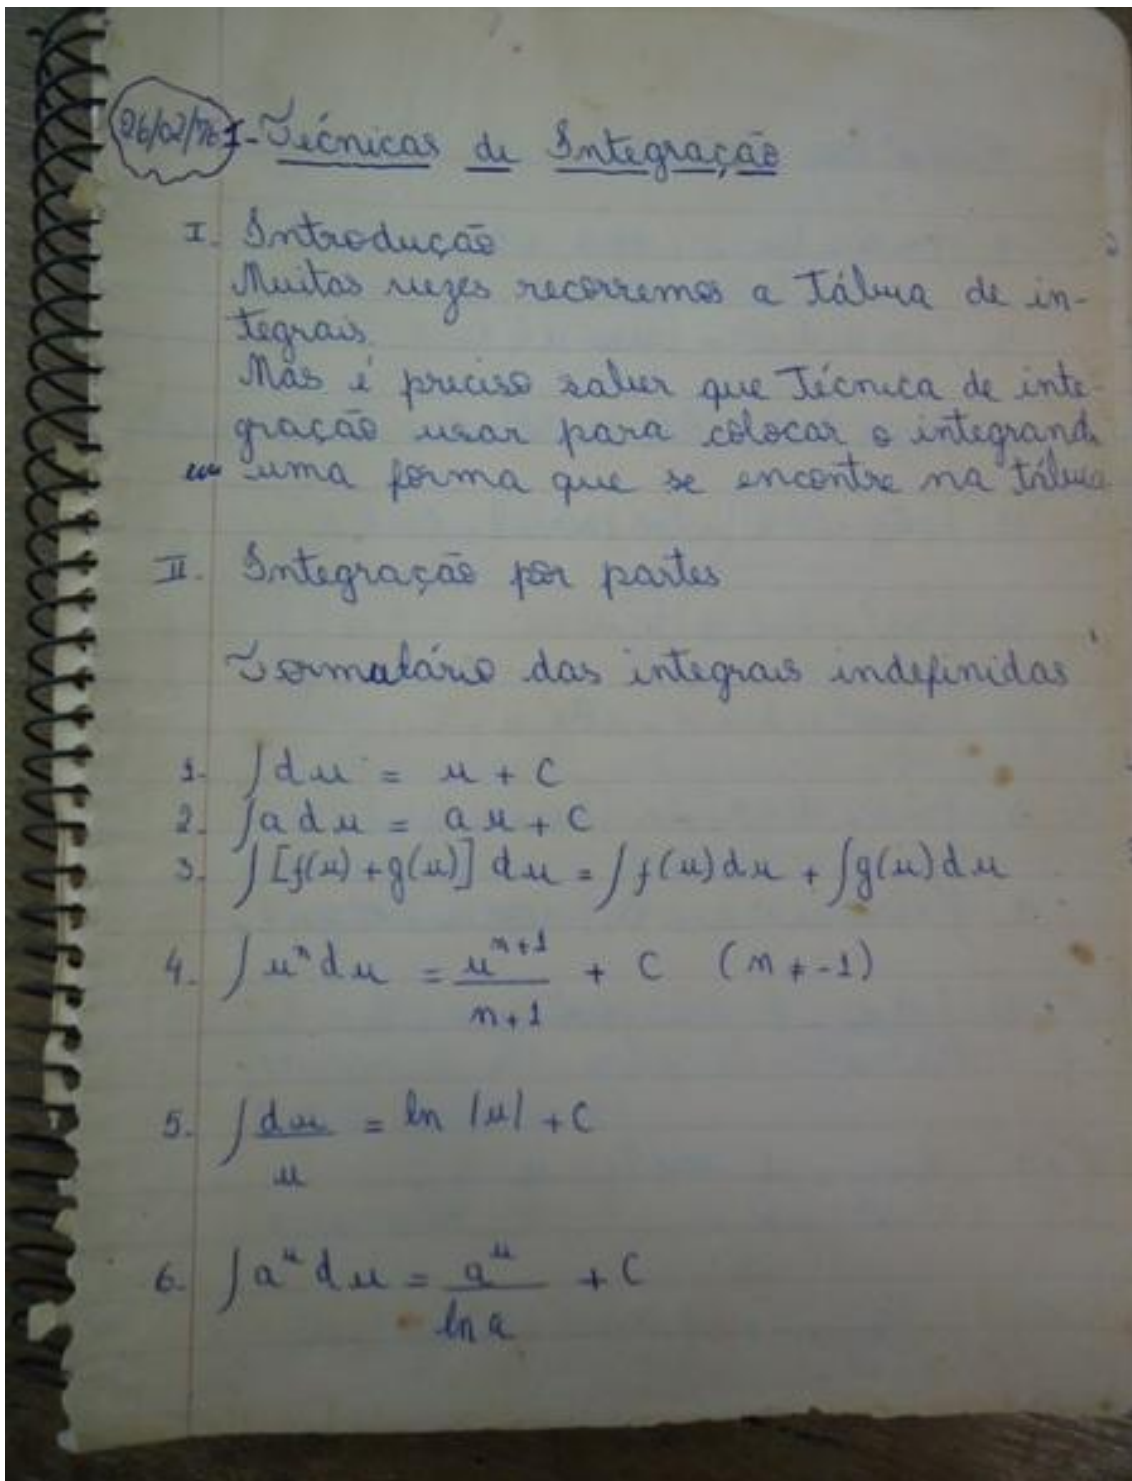 26/02/76 I - Técnicas de Integração
I. Introdução
Muitas vezes recorremos a Tábua de in-
tegrais
Mas é preciso saber que Técnica de inte-
gração usar para colocar o integrand
em uma forma que se encontre na tábua
II. Integração por partes
Formulário das integrais indefinidas
1- ∫ du = u + C
2. ∫ a du = au + C
3. ∫ [f(u) + g(u)] du = ∫ f(u) du + ∫ g(u) du
4. ∫ uⁿ du = uⁿ⁺¹/(n+1) + C (n ≠ -1)
5. ∫ du/u = ln |u| + C
6- ∫ aᵘ du = aᵘ/ln a + C